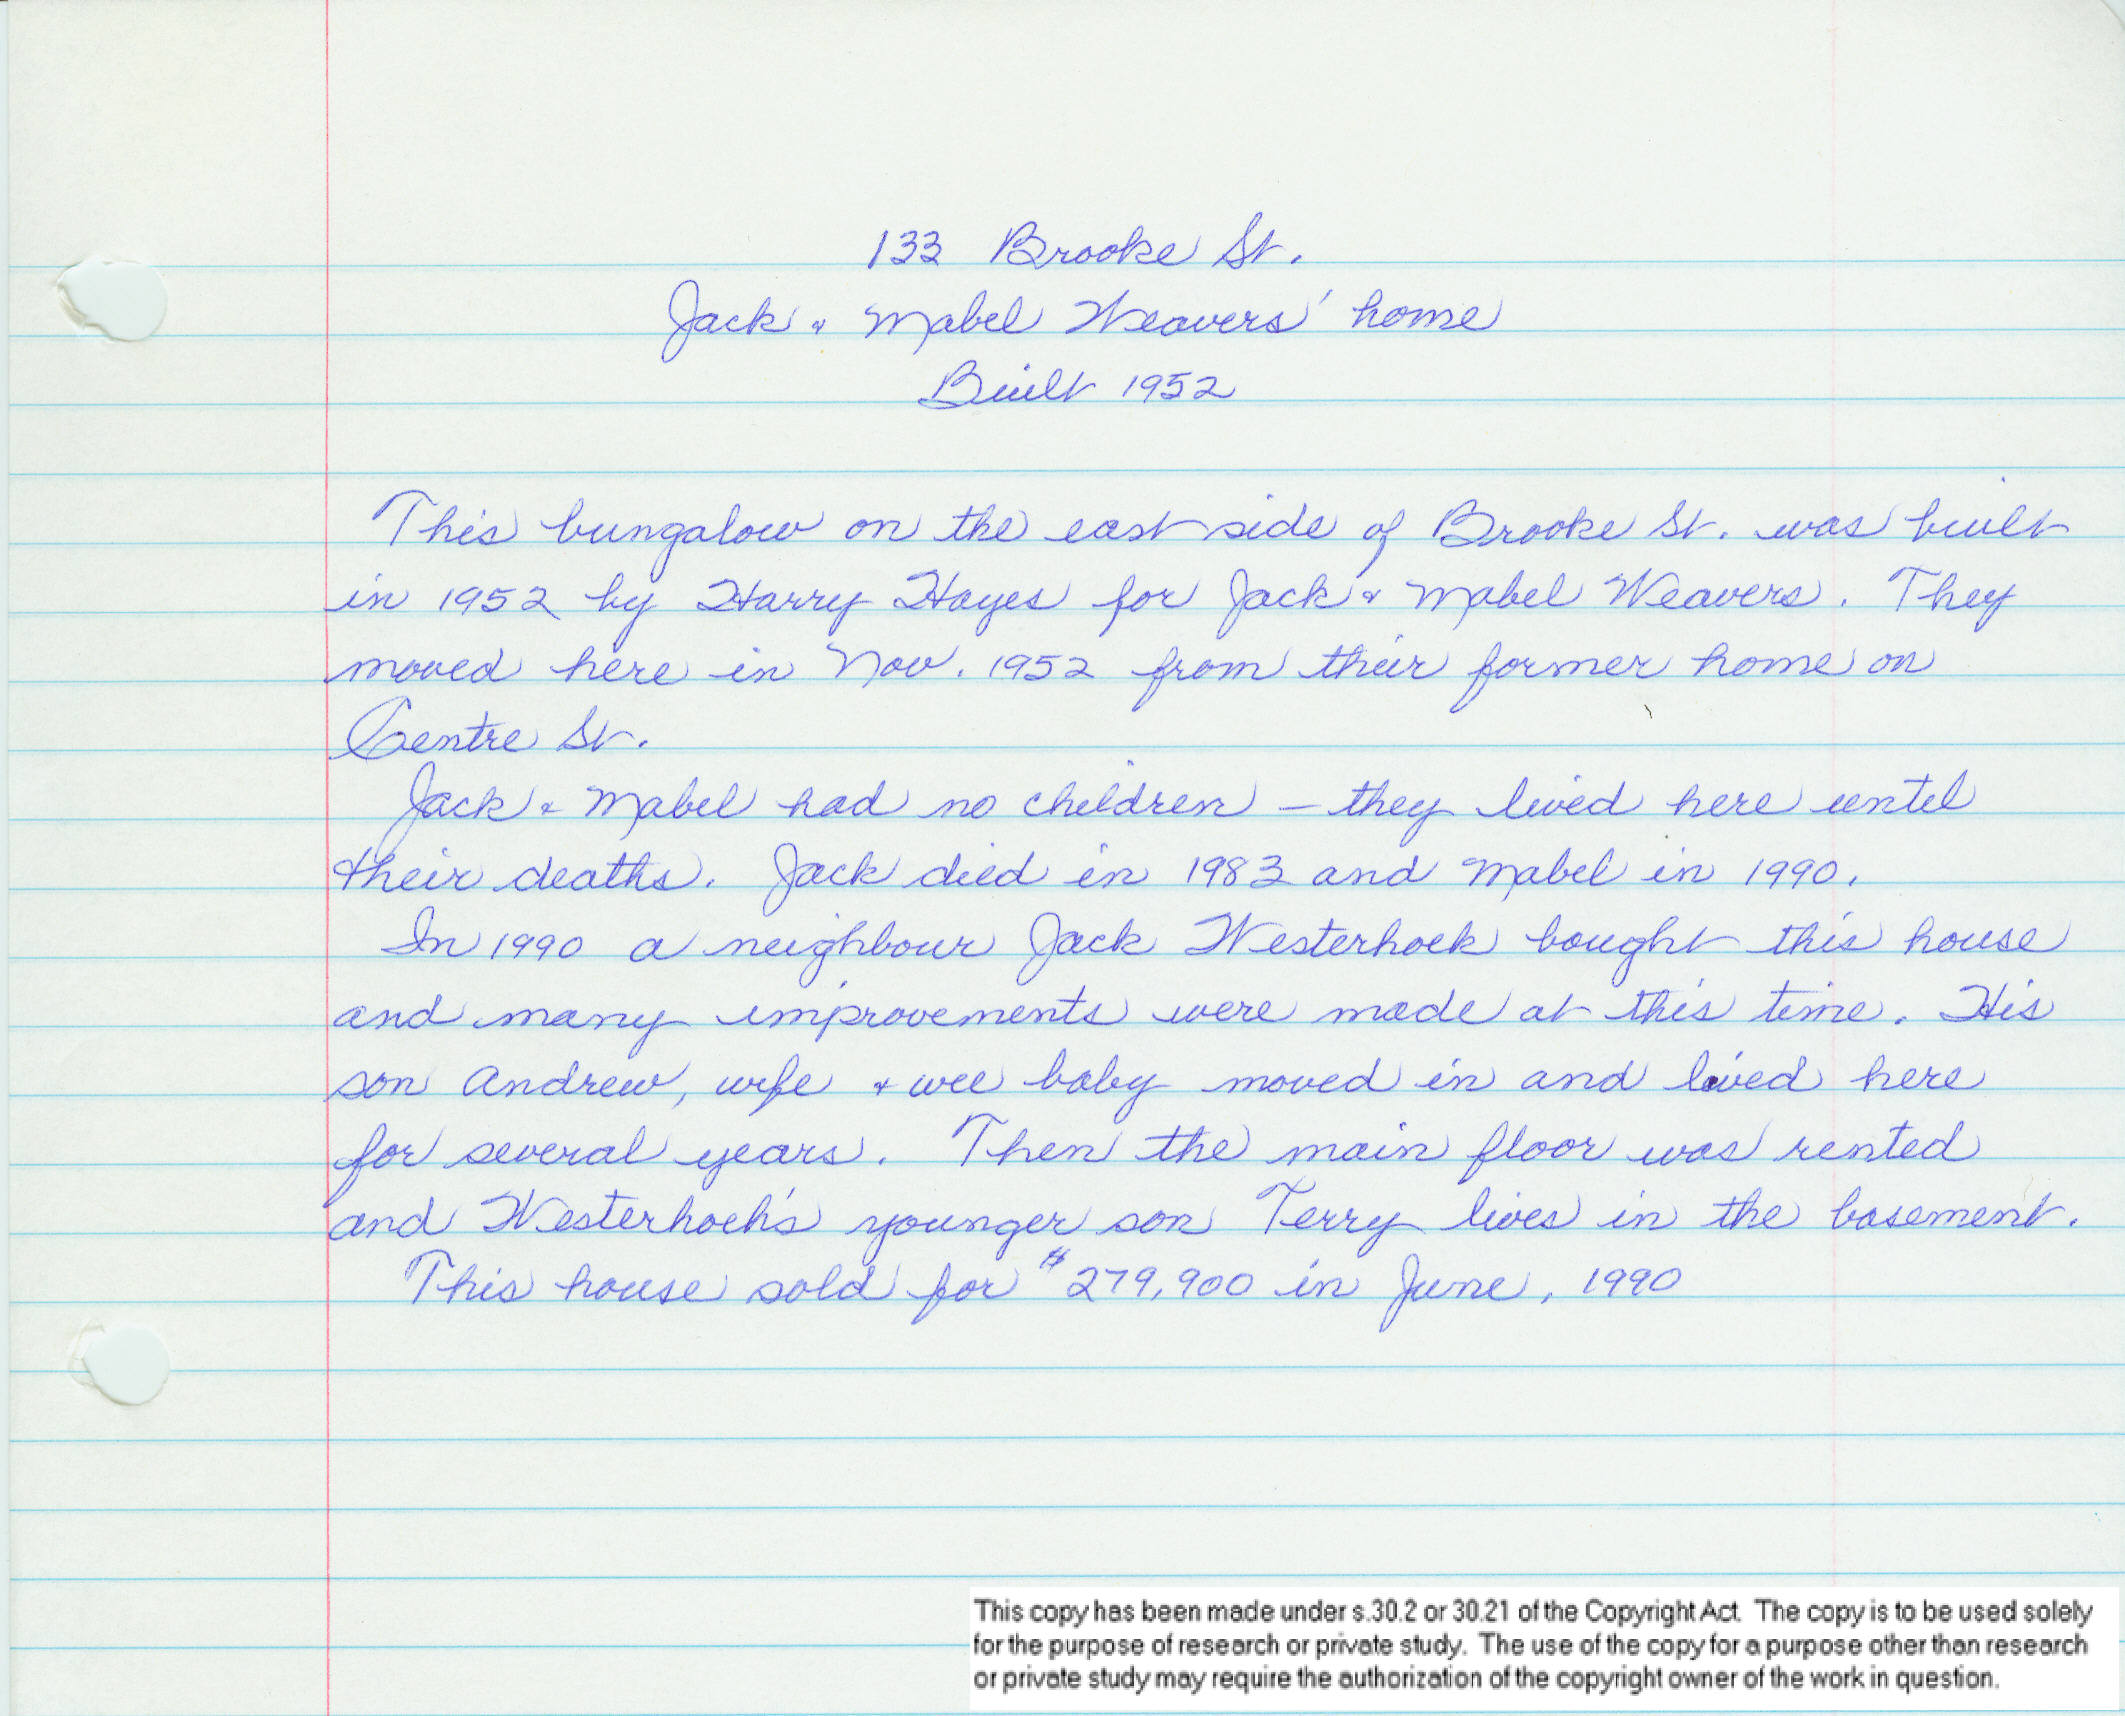 133 Brooke St.
Jack & Mabel Weavers' home
Built 1952
This bungalow on the east side of Brooke St. was built
in 1952 by Harry Hayes for Jack & Mabel Weavers. They
moved here in Nov. 1952 from their former home on
Centre St.
Jack & Mabel had no children – they lived here until
their deaths. Jack died in 1983 and Mabel in 1990.
In 1990 a neighbour Jack Westerhoek bought this house
and many improvements were made at this time. His
son Andrew, wife & wee baby moved in and lived here
for several years. Then the main floor was rented
and Westerhoek's younger son Terry lives in the basement.
This house sold for $279,900 in June, 1990
This copy has been made under s.30.2 or 30.21 of the Copyright Act. The copy is to be used solely
for the purpose of research or private study. The use of the copy for a purpose other than research
or private study may require the authorization of the copyright owner of the work in question.